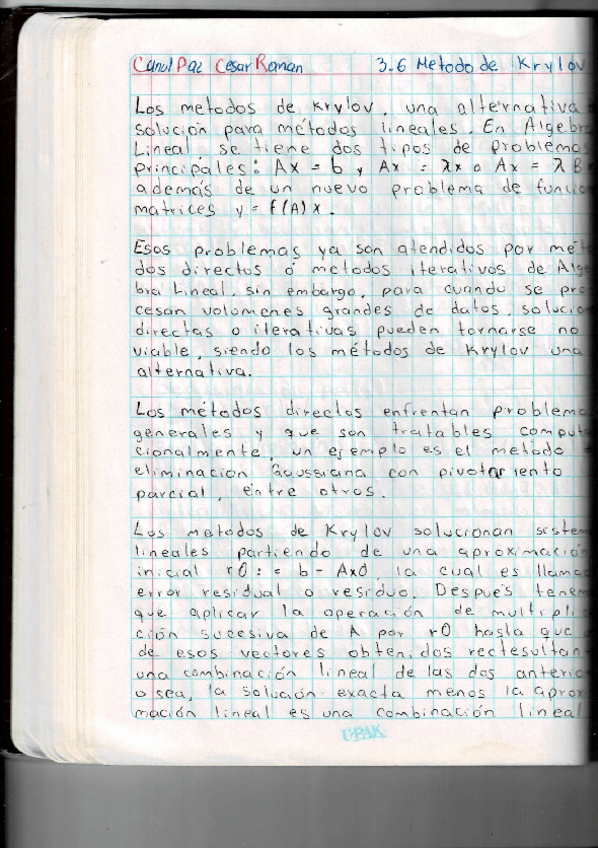 Canul Paz Cesar Roman 3.6 Metodo de Krylov
Los metodos de Krylov, una alternativa
solución para métodos lineales. En Algebra
Lineal se tiene dos tipos de problemas
principales: Ax = b y Ax = λx o Ax = λB
además de un nuevo problema de funcion
matrices y = f(A)x.
Esos problemas ya son atendidos por méto
dos directos ó metodos iterativos de Alge
bra Lineal, sin embargo, para cuando se pro
cesan volumenes grandes de datos, solucion
directas o iterativas pueden tornarse no
viable, siendo los métodos de Krylov una
alternativa.
Los métodos directos enfrentan problema
generales y que son tratables computa
cionalmente, un ejemplo es el metodo
eliminación Gaussiana con pivotamiento
parcial, entre otros.
Los metodos de Krylov solucionan sistem
lineales partiendo de una aproximación
inicial r0 := b - Ax0, la cual es llama
error residual o residuo. Después tenem
que aplicar la operación de multipli
ción sucesiva de A por r0 hasta que
de esos vectores obten. dos rectesultan
una combinación lineal de las dos anterio
o sea, la solución exacta menos la aprox
mación lineal es una combinación lineal
UPAK